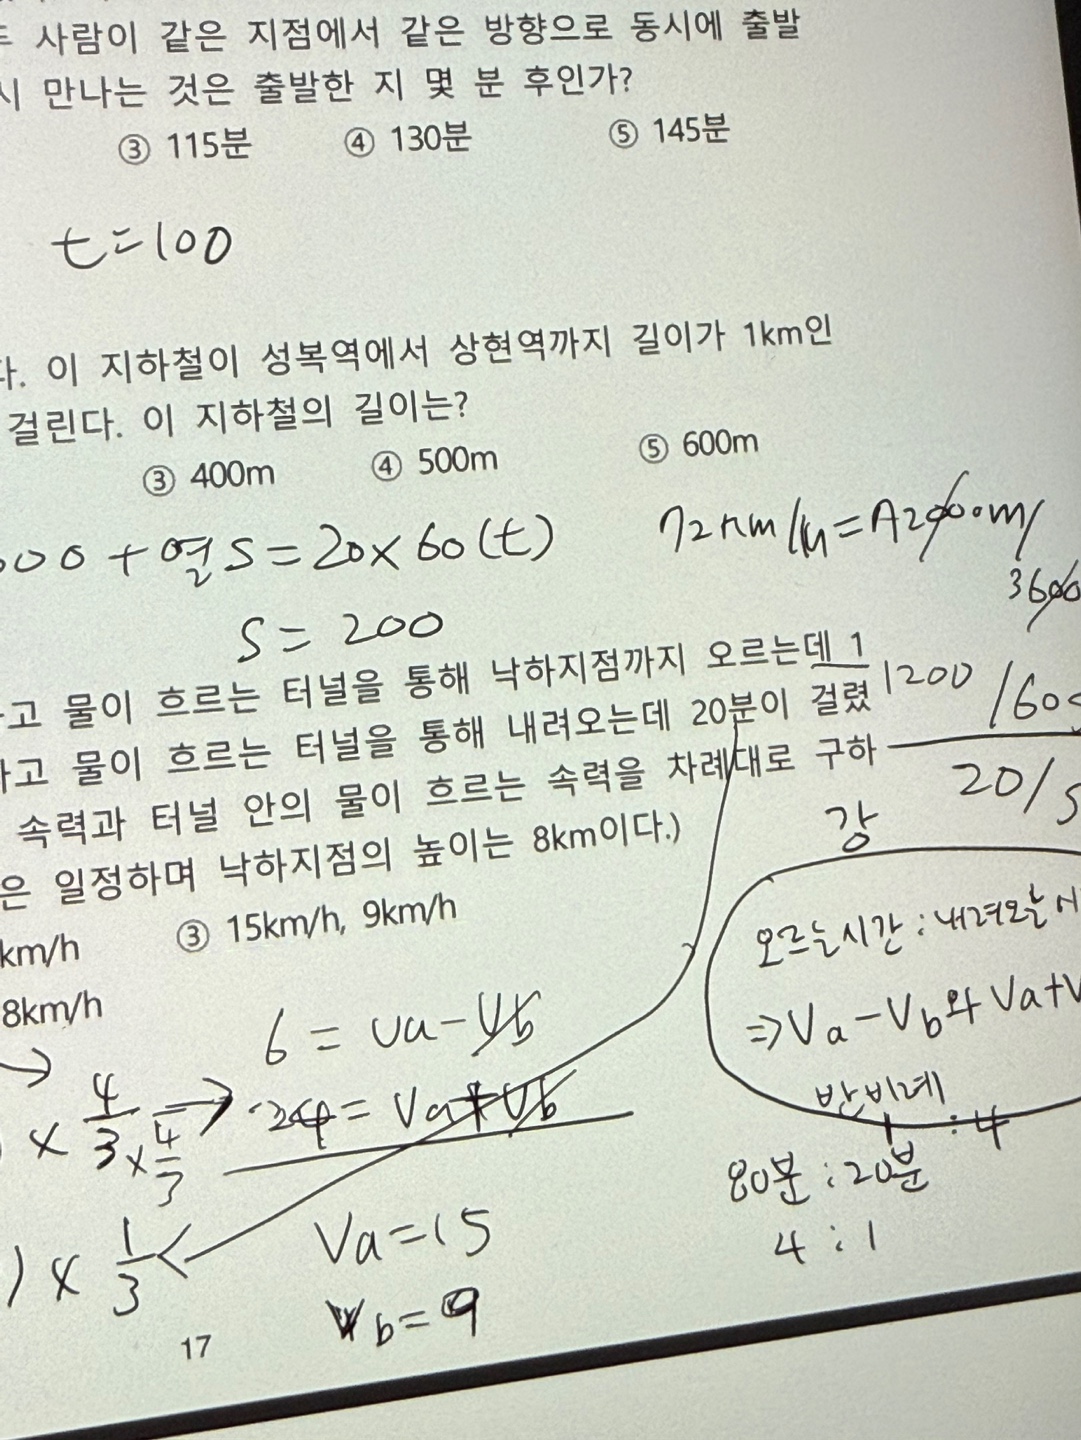 사람이 같은 지점에서 같은 방향으로 동시에 출발
시 만나는 것은 출발한 지 몇 분 후인가?
③ 115분 ④ 130분 ⑤ 145분
t=100
다. 이 지하철이 성복역에서 상현역까지 길이가 1km인
걸린다. 이 지하철의 길이는?
③ 400m ④ 500m ⑤ 600m
00 + 열 S = 20×60(t)
72km/h=72000m/
3600
S = 200
고 물이 흐르는 터널을 통해 낙하지점까지 오르는데 1
하고 물이 흐르는 터널을 통해 내려오는데 20분이 걸렸
1200 /60s
속력과 터널 안의 물이 흐르는 속력을 차례대로 구하
20/s
은 일정하며 낙하지점의 높이는 8km이다.)
강
km/h ③ 15km/h, 9km/h
8km/h
오르는시간 : 내려오는
⇒Va-Vb와 Va+V
반비례
1 : 4
80분 : 20분
4 : 1
6 = Va-Vb
× 4/3 → 24 = Va+Vb
× 4/3
) × 1/3
Va=15
Vb=9
17